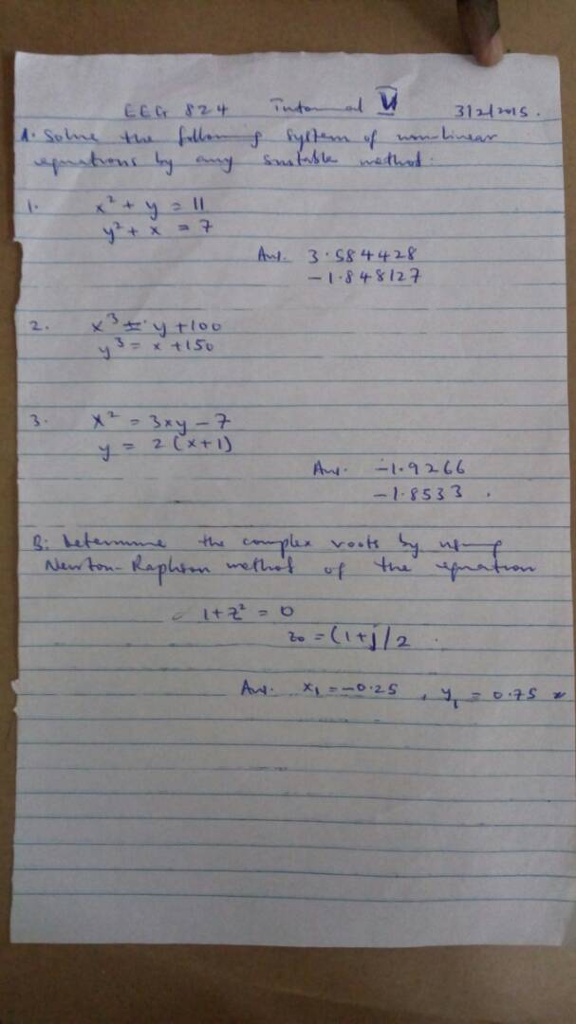 EEG 824 Tutorial VI 3/2/2015.
A. Solve the following system of nonlinear
equations by any suitable method.
1. x² + y = 11
y² + x = 7
Ans. 3.584428
-1.848127
2. x³ = y + 100
y³ = x + 150
3. x² = 3xy - 7
y = 2(x+1)
Ans. -1.9266
-1.8533.
B: Determine the complex roots by using
Newton-Raphson method of the equation
1 + z² = 0
z₀ = (1+j)/2.
Ans. x₁ = -0.25, y₁ = 0.75